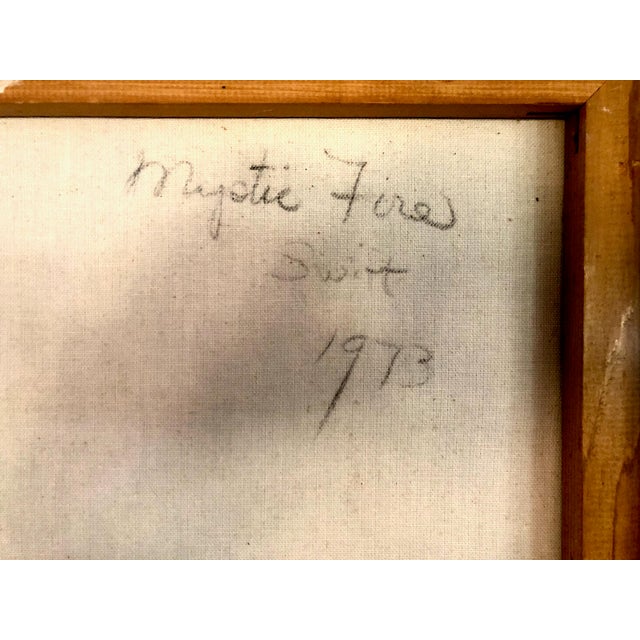 Mystic Fire
Swift
1973